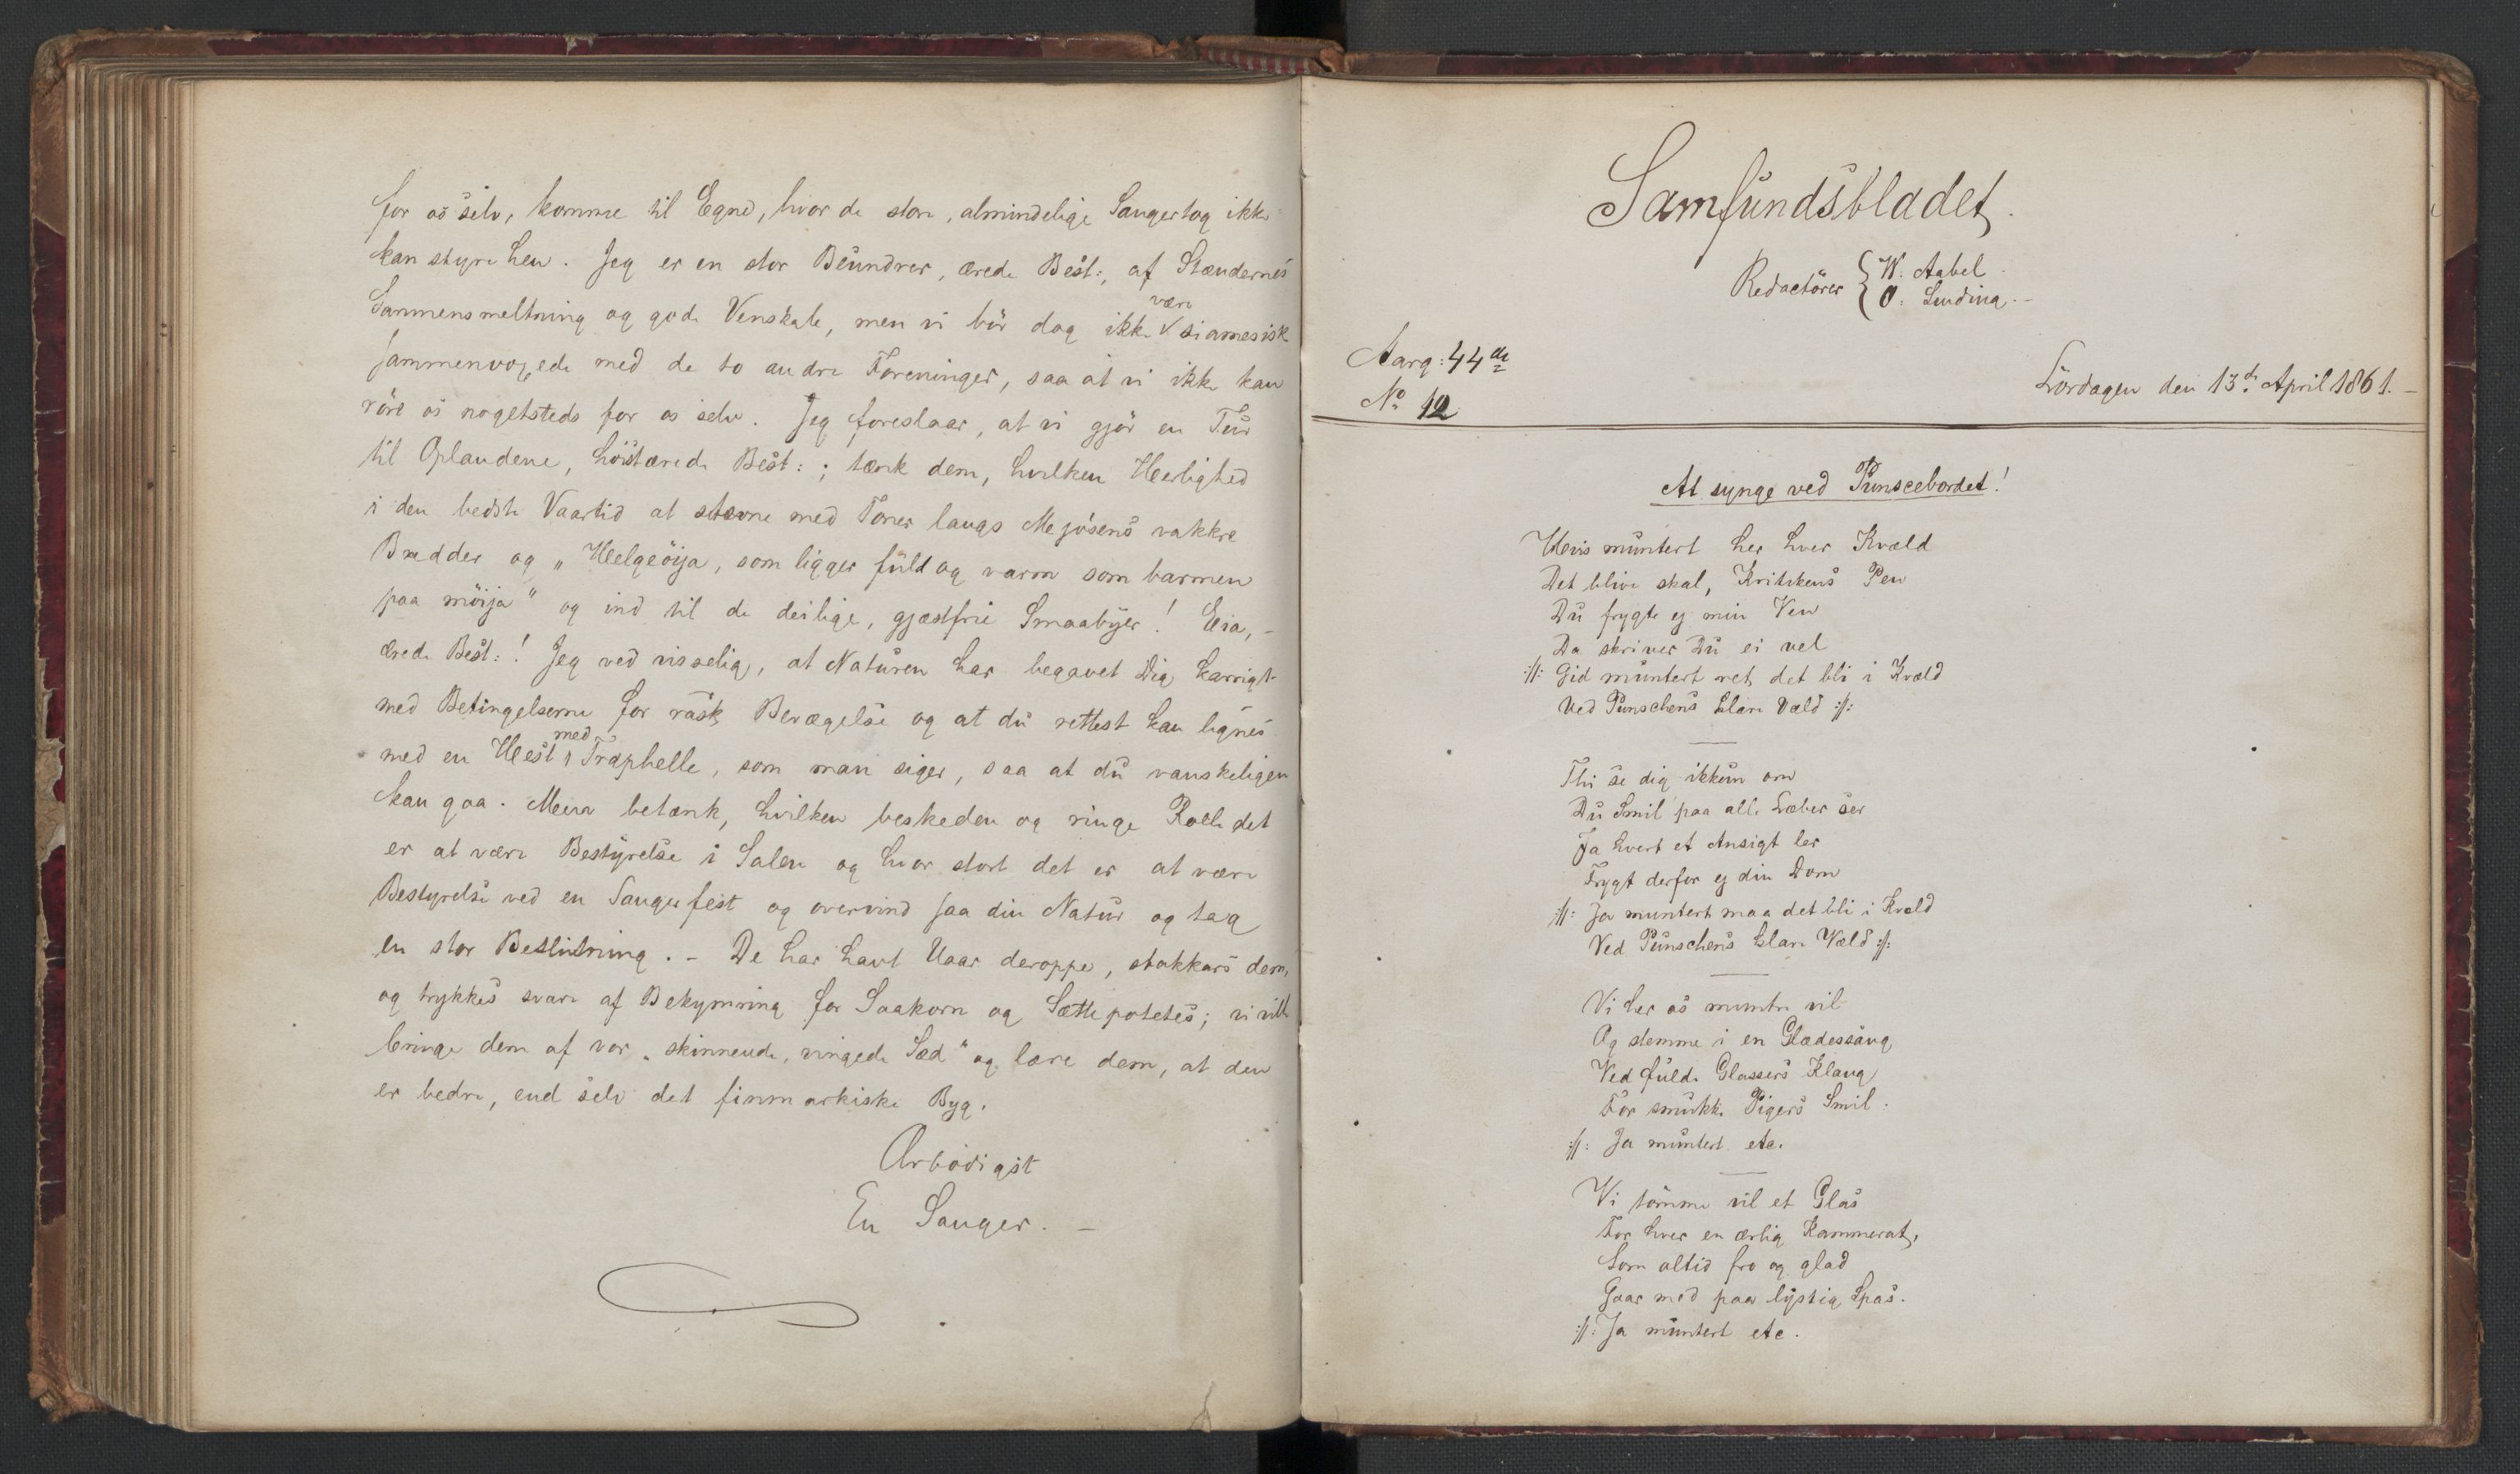 for os selv, komme til Egne, hvor de store, almindelige Sangertog ikke
kan styre hen. Jeg er en stor Beundrer, ærede Best:, af Stændernes
Sammensmeltning og gode Venskab, men vi bör dog ikke være siamesisk
sammenvoxede med de to andre Foreninger, saa at vi ikke kan
röre os nogetsteds for os selv. Jeg foreslaar, at vi gjör en Tur
til Oplandene, höistærede Best:; tænk dem, hvilken Herlighed
i den bedste Vaartid at stævne med Toner langs Mejösens vakkre
Bredder og „Helgeöija, som ligger fuld og varm som barmen
paa möija" og ind til de deilige, gjæstfrie Smaabyer! Eia, -
ærede Best:! Jeg ved visselig, at Naturen har begavet Dig karrigt
med Betingelserne for rask Bevægelse og at du rettest kan lignes
med en Hest med Træphelle, som man siger, saa at du vanskeligen
kan gaa. Men betænk, hvilken beskeden og ringe Rolle det
er at være Bestyrelse i Salen og hvor stort det er at være
Bestyrelse ved en Sangerfest og overvind saa din Natur og tag
en stor Beslutning. - De har havt Uaar deroppe, stakkars dem,
og trykkes svare af Bekymring for Saakorn og Sættepotetes; vi ville
bringe dem af vor „skinnende, vingede Sæd" og lære dem, at den
er bedre, end selv det finmarkiske Byg.
Ærbödigst
En Sanger. -
Samfundsbladet.
Redactörer { W. Aabel.
O. Linding. -
Aarg: 44de
No 12
Lördagen den 13de April 1861. -
At synge ved Punscebordet!
Hvis muntert her hver Kvæld
Det blive skal, Kritikens Pen
Du frygte ej min Ven
Da skriver Du ei vel
://: Gid muntert ret det bli i Kvæld
Ved Punschens klare Væld ://:
Thi se dig ikkun om
Du Smil paa alle Læber ser
Ja hvert et Ansigt ler
Frygt derfor ej din Dom
://: Ja muntert maa det bli i Kvæld
Ved Punschens klare Væld ://:
Vi her os muntre vil
Og stemme i en Glædessang
Ved fulde Glassers Klang
For smukke Pigers Smil.
://: Ja muntert etc.
Vi tömme vil et Glas
For hver en ærlig Kammerat,
Som altid fro og glad
Gaar med paa lystig Spas.
://: Ja muntert etc.